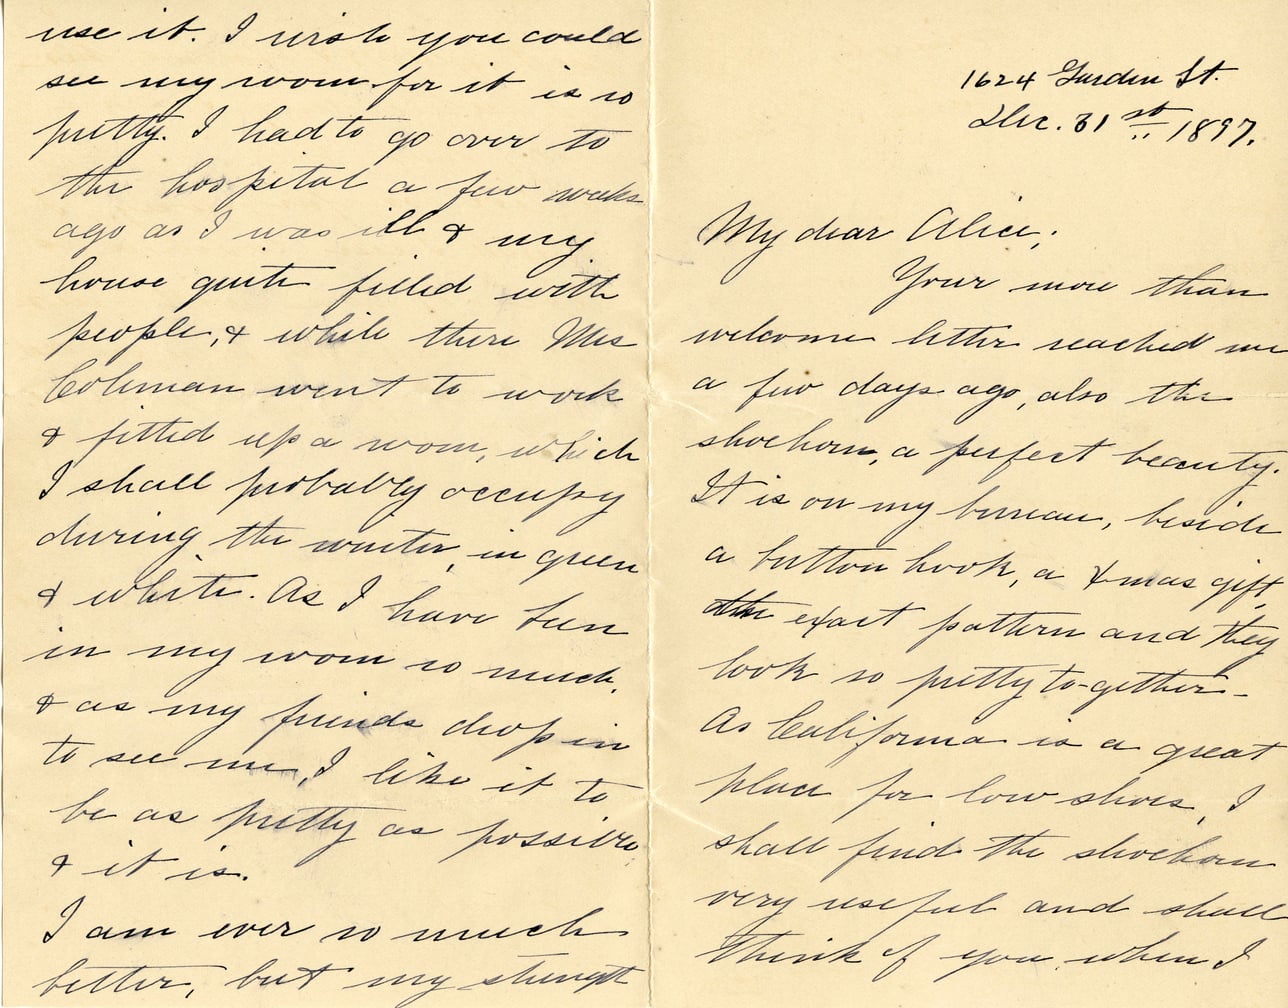 1624 Garden St.
Dec. 31st 1897.
My dear Alice;
Your more than
welcome letter reached me
a few days ago, also the
shoehorn, a perfect beauty.
It is on my bureau, beside
a button hook, a Xmas gift,
the exact pattern and they
look so pretty to-gether-
As California is a great
place for low shoes, I
shall find the shoehorn
very useful and shall
think of you when I
use it. I wish you could
see my room for it is so
pretty. I had to go over to
the hospital a few weeks
ago as I was ill & my
house quite filled with
people, & while there Mrs
Coleman went to work
& fitted up a room, which
I shall probably occupy
during the winter, in green
& white. As I have been
in my room so much,
& as my friends drop in
to see me, I like it to
be as pretty as possible,
& it is.
I am ever so much
better, but my strength